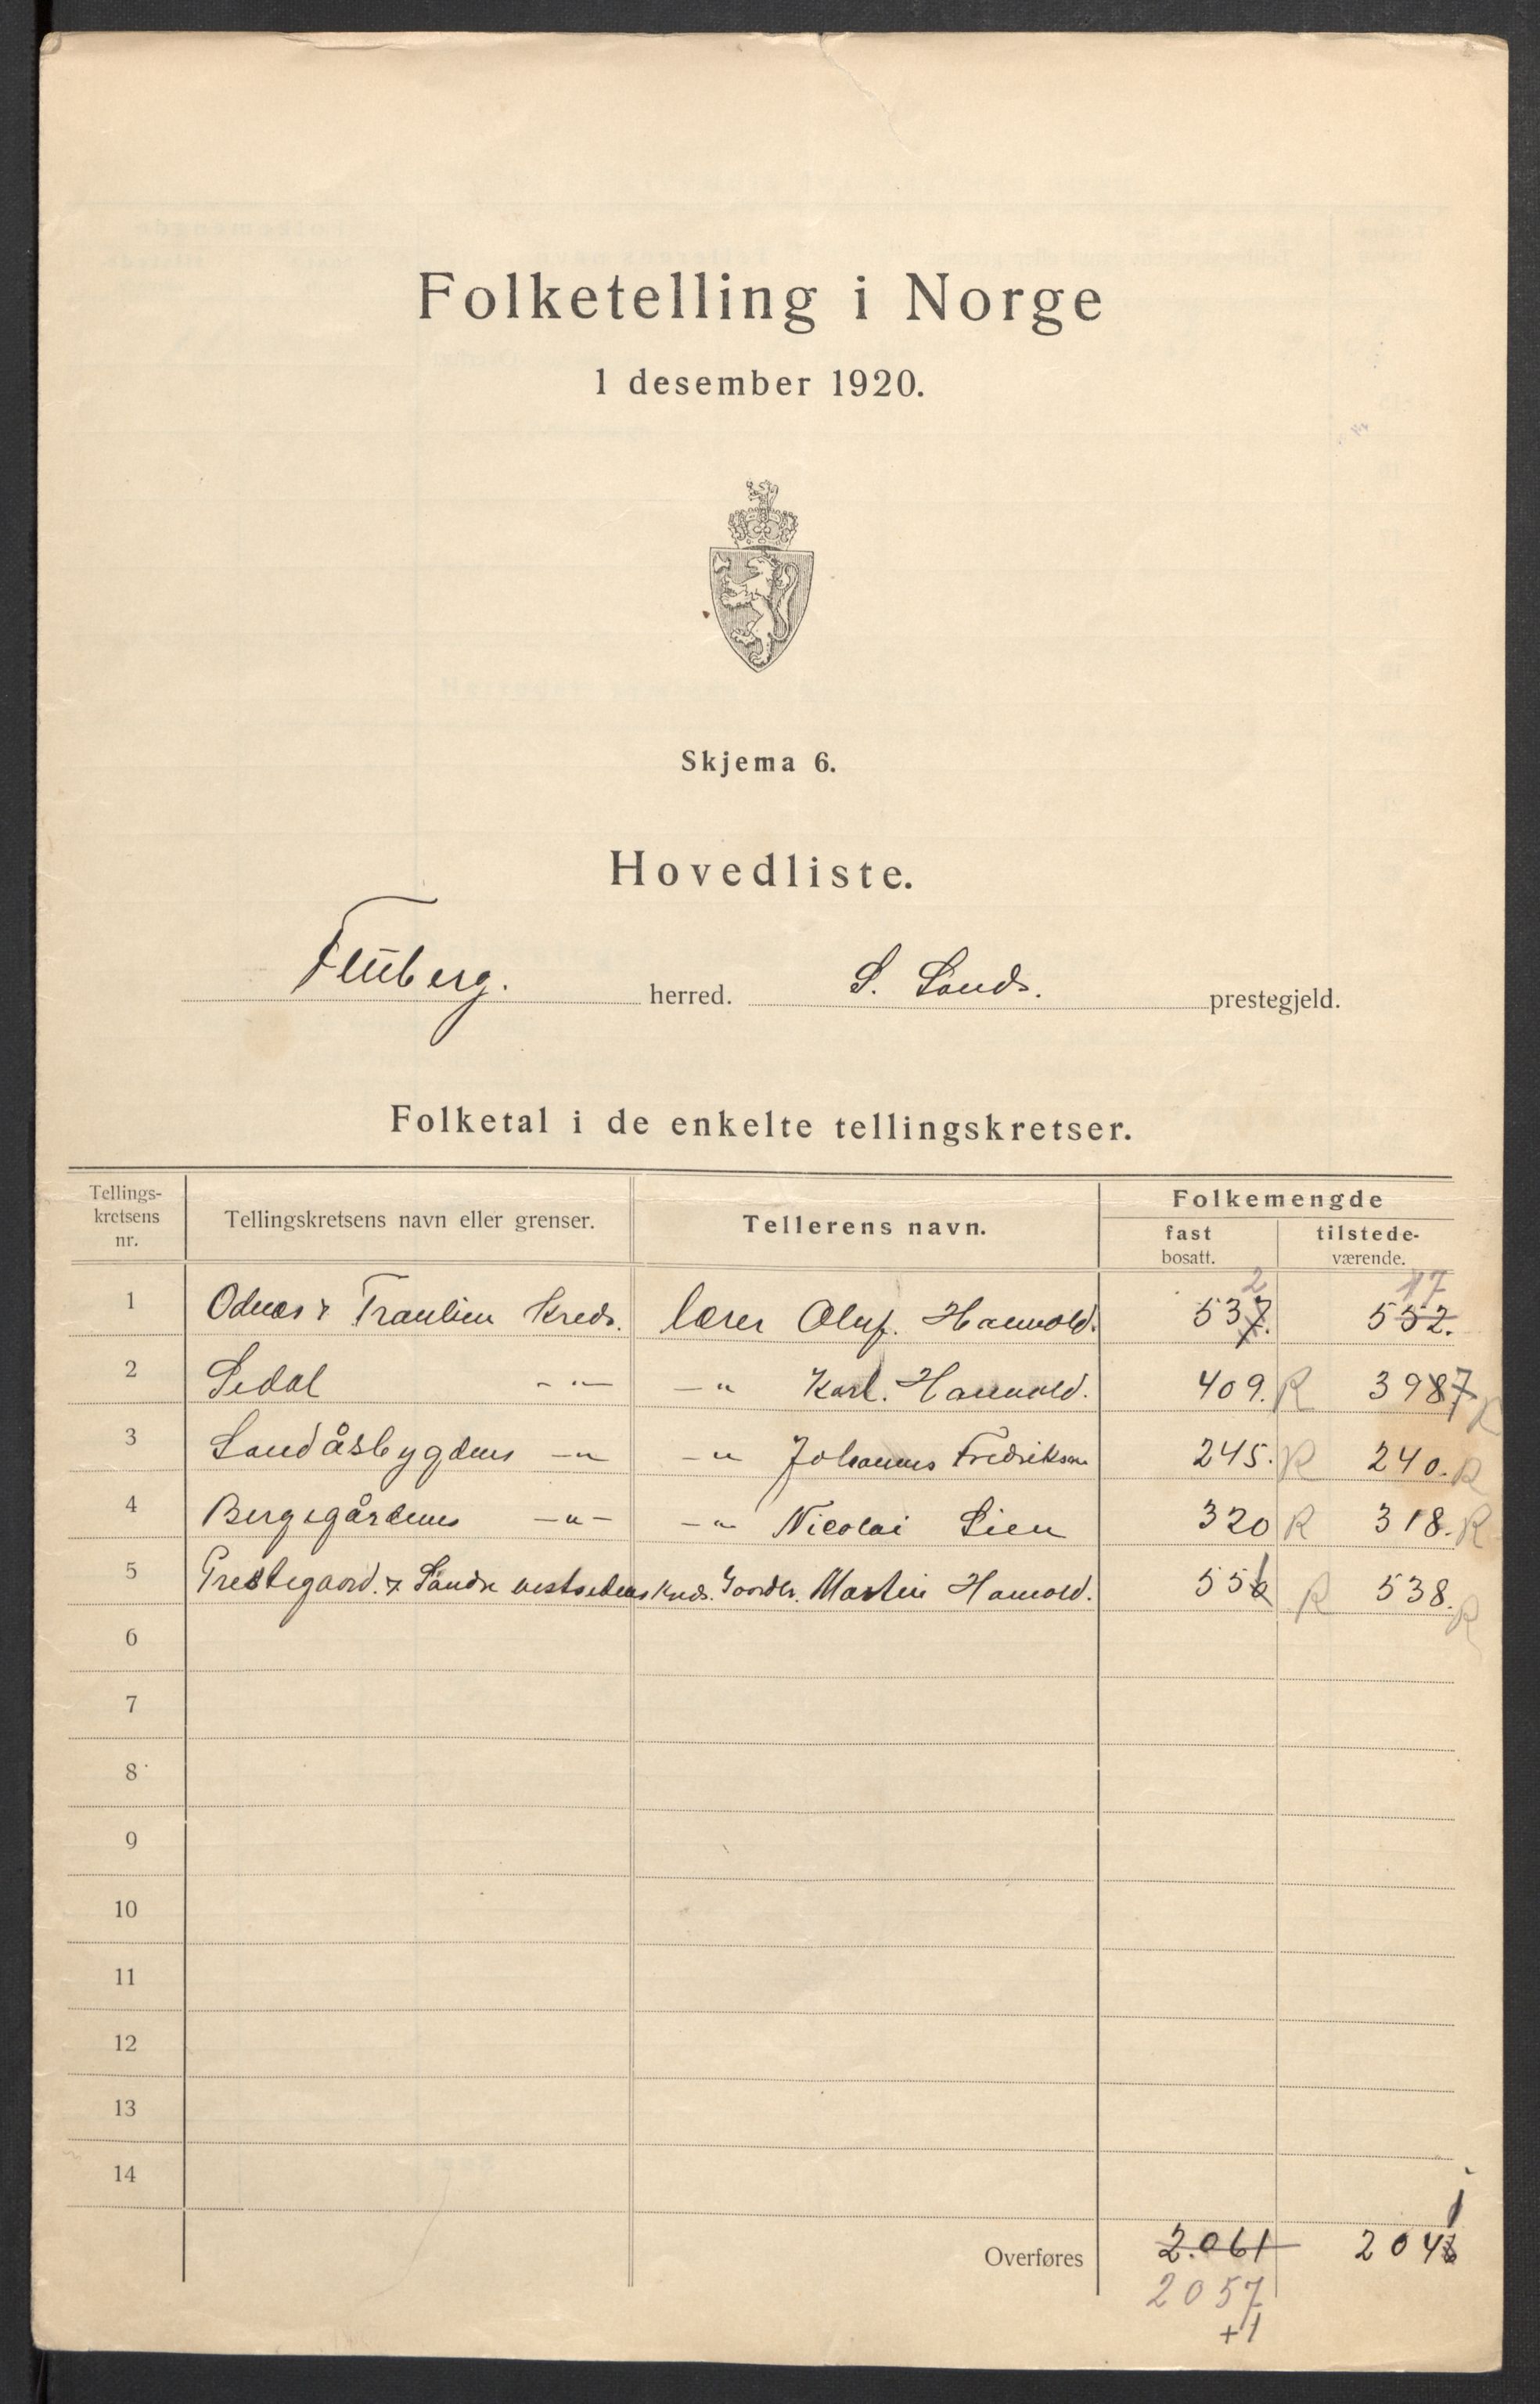 Folketelling i Norge
1 desember 1920.
Skjema 6.
Hovedliste.
Fluberg. herred. S. Lands. prestegjeld.
Folketal i de enkelte tellingskretser.
Tellings-kretsens nr. Tellingskretsens navn eller grenser. Tellerens navn. Folkemengde
fast bosatt. tilstede-værende.
2 17
1 Odnæs & Kreds. lærer Oluf. Hannold. 537. 552.
2 Ledal -"- -"- Karl. Hannold. 409. R 3987 R
3 Landåsbygdens -"- -"- Johannes Fredriksen 245. R 240. R
4 Bergegårdens -"- -"- Nicolai Lien 320 R 318. R
5 Prestegaard. & Søndre vestsidens Kreds. Gaardbr. Martin Hannold. 551 R 538. R
6
7
8
9
10
11
12
13
14
1
Overføres 2.061 2046
2057
+1